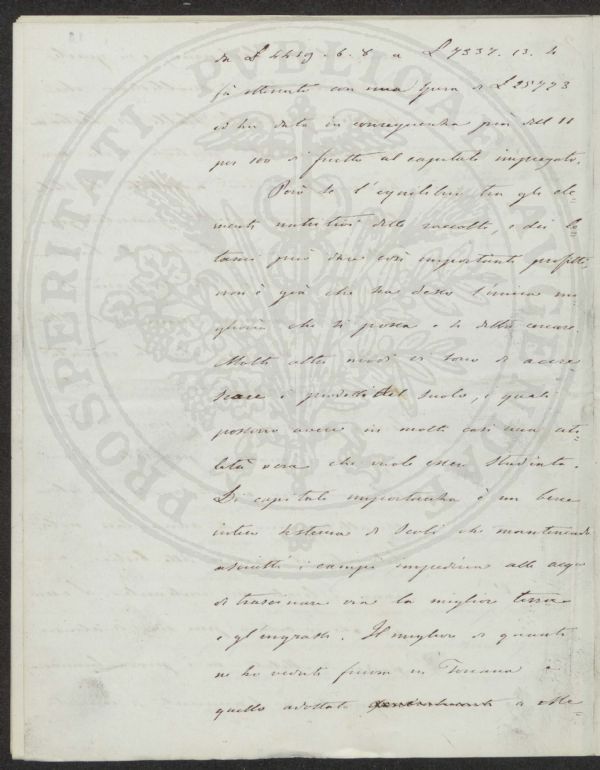 da £ 4419. 6. 8 a £ 7337. 13. 4
fu ottenuto con una spesa di £ 25773
ed ha dato in conseguenza più dell' 11
per 100 di frutto al capitale impiegato.
Però se l'equilibrio tra gli ele-
menti nutritivi delle raccolte, e dei le-
tami può dare così importanti profitti,
non è già che sia desso l'unica mi
glioria che si possa e si debba cercare.
Molti altri modi vi sono di accre
scere i prodotti del suolo, i quali
possono avere in molti casi una uti-
lità vera che vuole essere studiata.
Di capitale importanza è un bene
inteso sistema di scoli che mantenendo
asciutti i campi impedisca alle acque
di trascinare via la miglior terra
e gl'ingrassi. Il migliore di quanti
ne ho veduti finora in Toscana è
quello adottato a Mele-
PROSPERITATI PVBLICAE AVGENDAE